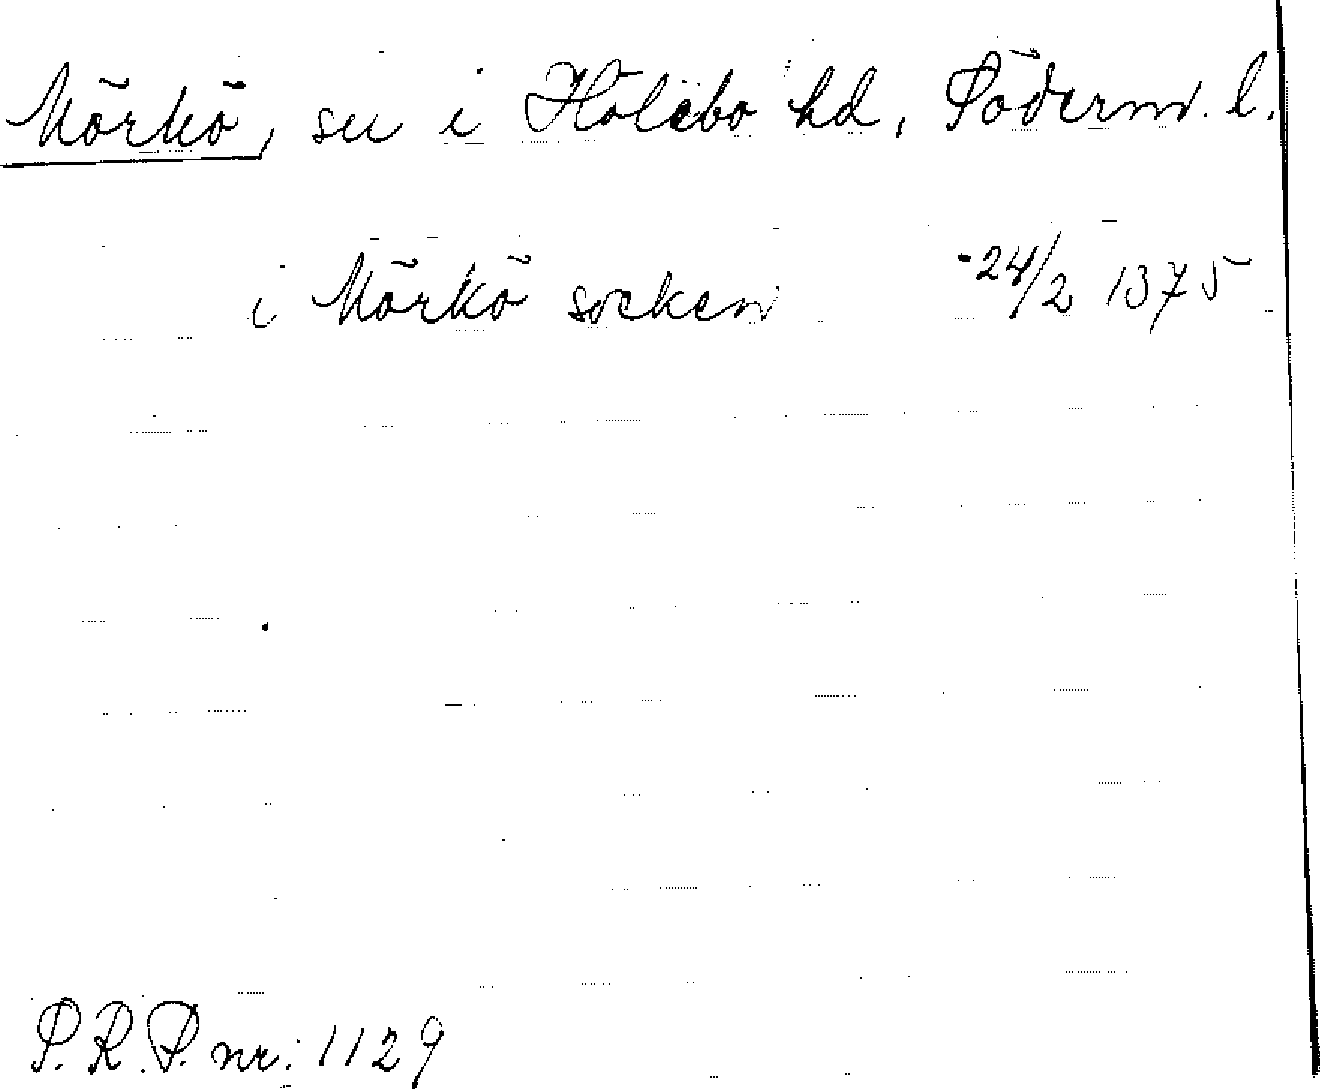 Mörkö, sn i Hölebo hd, Söderm. l.
i Mörkö socken 24/2 1375
S.R.P. nr: 1129